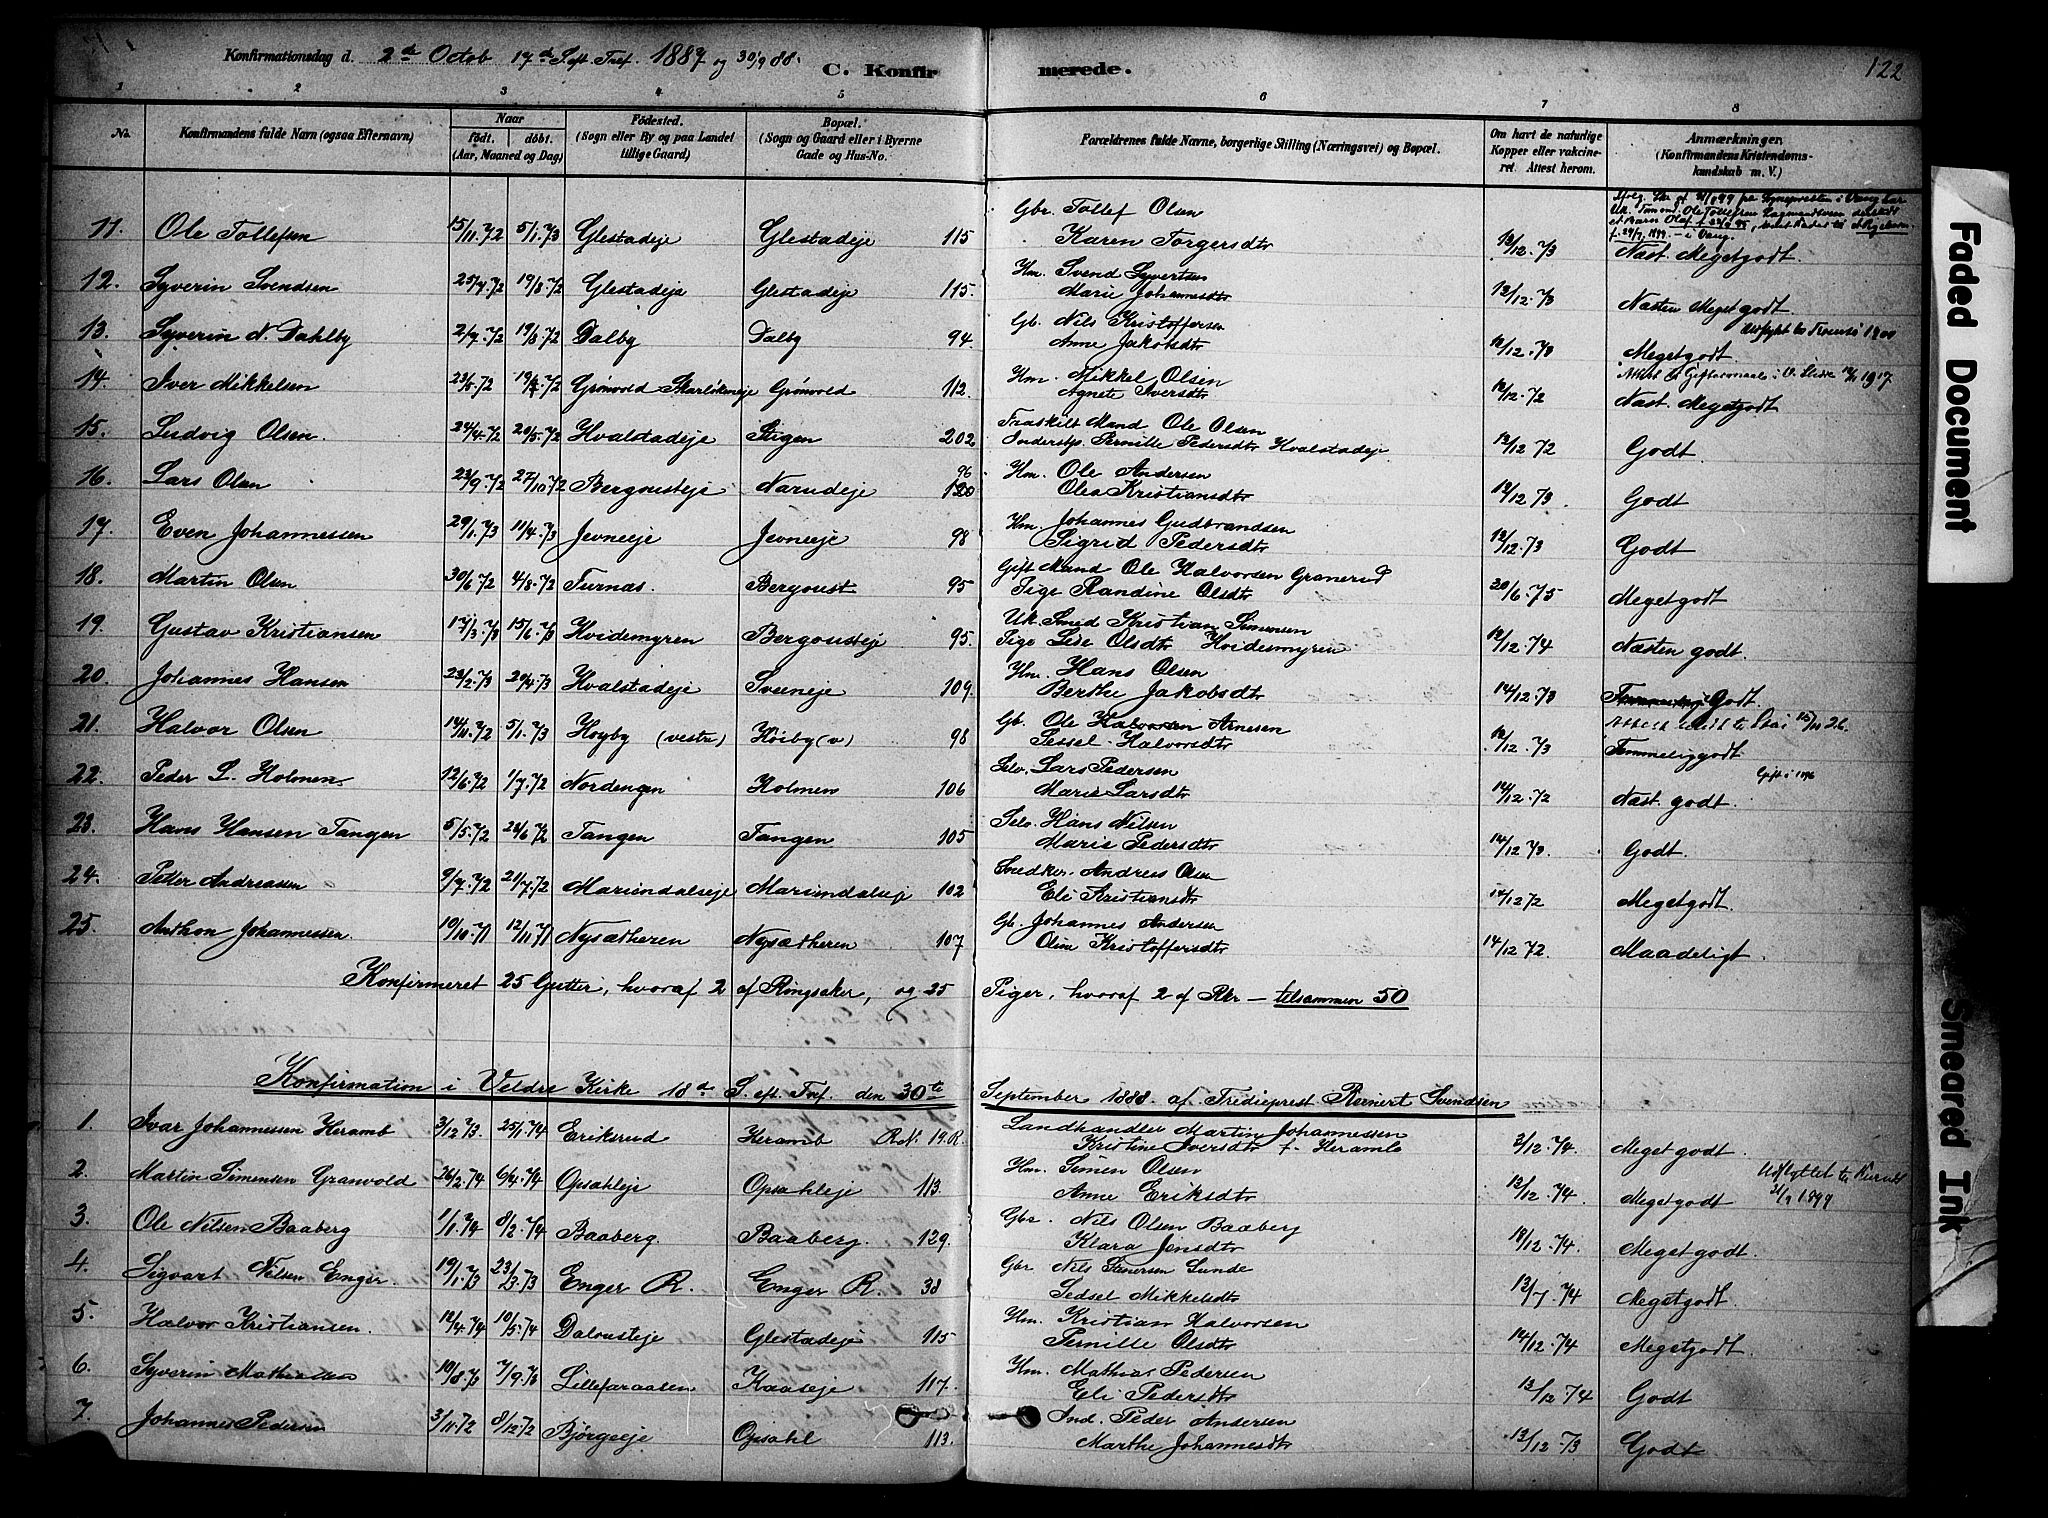 Konfirmationsdag d. 2de Octob 17de S. eft. Tref. 1887 og 30/9 88. C. Konfirmerede. 122
1 2 3 4 5 6 7 8
No. Konfirmandens fulde Navn (ogsaa Efternavn) Naar født. døbt. (Aar, Maaned og Dag) Fødested. (Sogn eller By og paa Landet tillige Gaard) Bopæl. (Sogn og Gaard eller i Byerne Gade og Hus-No. Forældrenes fulde Navne, borgerlige Stilling (Næringsvei) og Bopæl. Om havt de naturlige Kopper eller vakcineret. Attest herom. Anmærkninger. (Konfirmandens Kristendomskundskab m. V.)
11. Ole Tollefsen 15/11.72 5/1.73 Glestadeje Glestadeje 115 Gbr. Tollef Olsen
Karen Torgersdtr 12/12.73 Næst. Megetgodt.
12. Syverin Svendsen 25/7.72 19/8.72 Glestadeje Glestadeje 115. Hm. Svend Syvertsen
Marie Johannesdtr 12/12.73 Næsten Megetgodt.
13. Syverin N. Dahlby 2/7.72 19/8.72 Dalby Dalby 94. Gb. Nils Kristoffersen
Anne Jakobsdtr 12/12.73 Megetgodt. Udflyt to Tromsø 1900
14. Iver Mikkelsen 23/5.72 Grønvold Skarlökeneje Grönvold 112. Hm. Mikkel Olsen
Agnete Iversdtr 12/12.72 Næst. Megetgodt
15. Ludvig Olsen. 24/4.72 20/5.72 Hvalstadeje Stigen 202 Fraskilt Mand Ole Olsen
Inderstp. Pernille Pedersdtr Hvalstadeje 12/12 72 Godt.
16. Lars Olsen 23/9.72 27/10.72 Bergousteje Narudeje 96 120 Hm. Ole Andersen
Olea Kristiansdtr 12/12.73 Godt
17. Even Johannessen 29/1.73 11/4.73 Jevneeje Jevneeje 98 Hm. Johannes Gudbrandsen
Sigrid Pedersdtr 12/12.73 Godt
18. Martin Olsen 30/6.72 4/8.72 Furnæs. Bergoust 95 Gift Mand Ole Halvorsen Granerud
Pige Randine Olsdtr 20/6.75 Megetgodt
19. Gustav Kristiansen 12/3.73 15/6.73 Hvidemyren Bergousteje 95. Uk. Smed Kristian Simensen
Pige Lise Olsdtr Hvidemyren 12/12.74 Næsten godt.
20. Johannes Hansen 23/2.73 20/4.73 Hvalstadeje Sveneje 109. Hm. Hans Olsen
Berthe Jakobsdtr 14/12.73 Godt.
21. Halvor Olsen 14/11.72 5/1.73 Høyby (vestr) Höiby (v) 98 Gb. Ole Halvorsen Arnesen
Sessel Halvorsdtr 12/12.73 Temmeliggodt.
22. Peder L. Holmen 12/6.72 1/7.72 Nordengen Holmen 106 Selv. Lars Pedersen
Marie Larsdtr 14/12.72 Næst. godt.
23. Hans Hansen Tangen 5/5.72 Tangen Tangen 105 Selv. Hans Nilsen
Marie Pedersdtr 14/12.73. Godt.
24. Peder Andreassen 9/7.72 21/7.72 Mariendalseje Mariendalseje 102 Snedker. Andreas Olsen
Eli Kristiansdtr 14/12 72 Megetgodt.
25. Anthon Johannessen. 19/10.71 12/11.71 Nysætheren Nysætheren 107 Gb. Johannes Andersen
Oline Kristoffersdtr 14/12.72. Maadeligt.
Konfirmeret 25 Gutter, hvoraf 2 af Ringsaker, og 25 Piger, hvoraf 2 af Rkr – tilsammen 50
Konfirmation i Veldre Kirke 18de S. eft. Tref. den 30te September 1888 af Tredieprest Reinert Svendsen
1. Ivar Johannessen Heramb 3/12.73. 25/1.74 Eriksrud Heramb R.N. 19.R. Landhandler Martin Johannessen
Kristine Iversdtr f. Heramb 3/12.74. Megetgodt.
2. Martin Simensen Granvold 26/2.74 6/4.74 Opsahleje Opsahleje 113. Hm. Simen Olsen
Anne Eriksdtr 13/12.74. Megetgodt
3. Ole Nilsen Baaberg 1/1.74 8/2.74 Baaberg. Baaberg. 129. Gbr. Nils Olsen Baaberg
Klara Jensdtr 18/12.74. Megetgodt.
4. Sigvart Nilsen Enger. 19/1.73 23/3.73 Enger R. Enger R. 38 Gbr Nils Simensen Sunde
Sedsel Mikkelsdtr 13/7.74 Megetgodt.
5. Halvor Kristiansen. 12/4.74 10/5.74 Dalousteje Glestadeje 115 Hm. Kristian Halvorsen
Pernille Olsdtr 14/12.74 Megetgodt.
6. Syverin Mathiassen 10/8.73 7/9.73 Lillefaraasen Kaaseje 117. Hm. Mathias Pedersen
Eli Pedersdtr 13/12.74 Godt
7. Johannes Pedersen 3/11.72 8/12.72 Bjørgeeje Opsahl 113. Ind. Peder Andersen
Marthe Johannesdtr 13/12.73 Godt
Faded Document
Smeared Ink